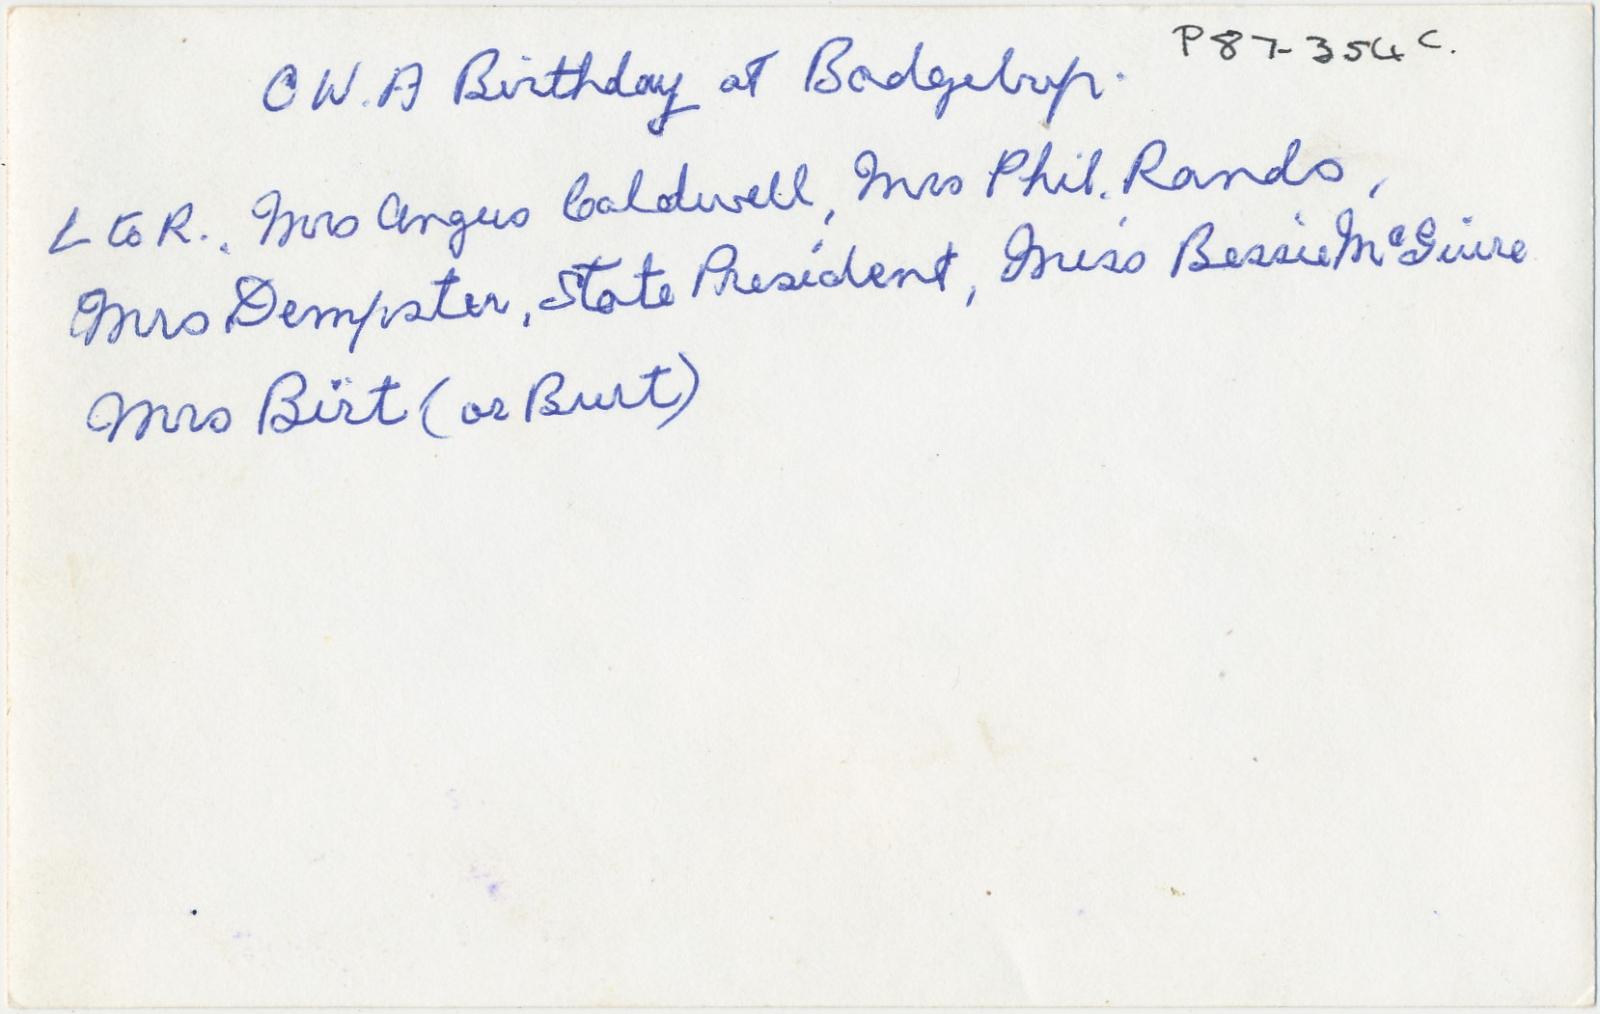 P87-354C.
C W.A Birthday at Badgebup.
L to R., Mrs Angus Caldwell, Mrs Phil. Rands,
Mrs Dempster, State President, Miss Bessie McGuire
Mrs Birt (or Burt)